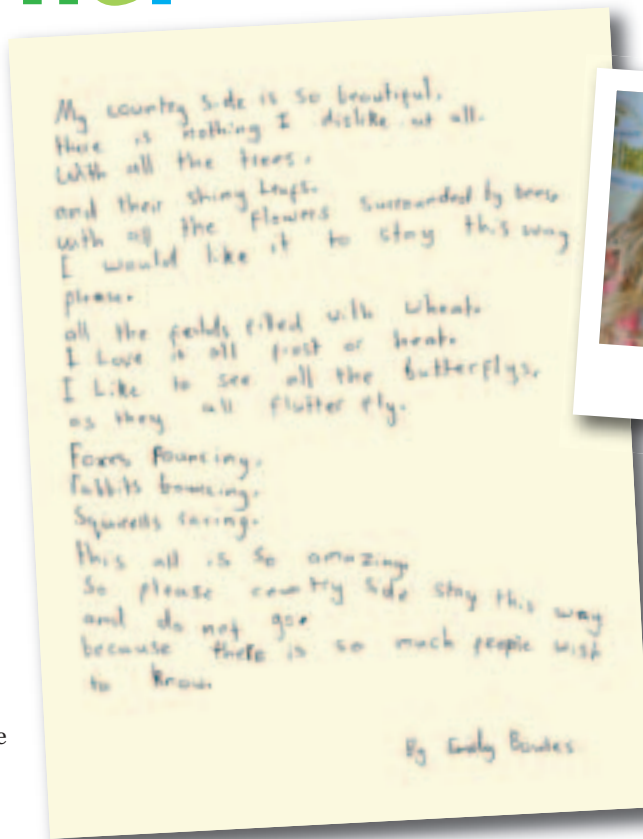 My country side is so beautiful.
there is nothing I dislike at all.
With all the trees.
and their shiny leafs.
with all the flowers surrounded by bees
I would like it to stay this way
please.
all the feilds filled with wheat.
I Love it all frost or heat.
I Like to see all the butterflys.
as they all flutter fly.
Foxes Pouncing.
rabbits bouncing.
Squirells
this all is so amazing
So please country side stay this way
and do not go.
because there is so much people wish
to know.
By Emily Bowles
e